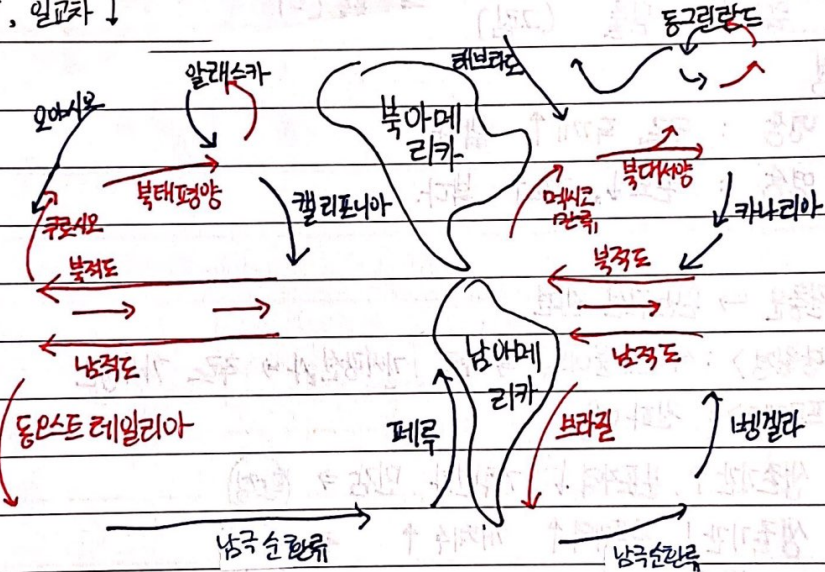 , 일교차 ↓
동그린란드
래브라도
알래스카
오야시오
북아메
리카
북태평양
북대서양
캘리포니아
멕시코
만류
카나리아
쿠로시오
북적도
북적도
남적도
남아메
리카
남적도
동오스트레일리아
페루
브라질
벵겔라
남극순환류
남극순환류